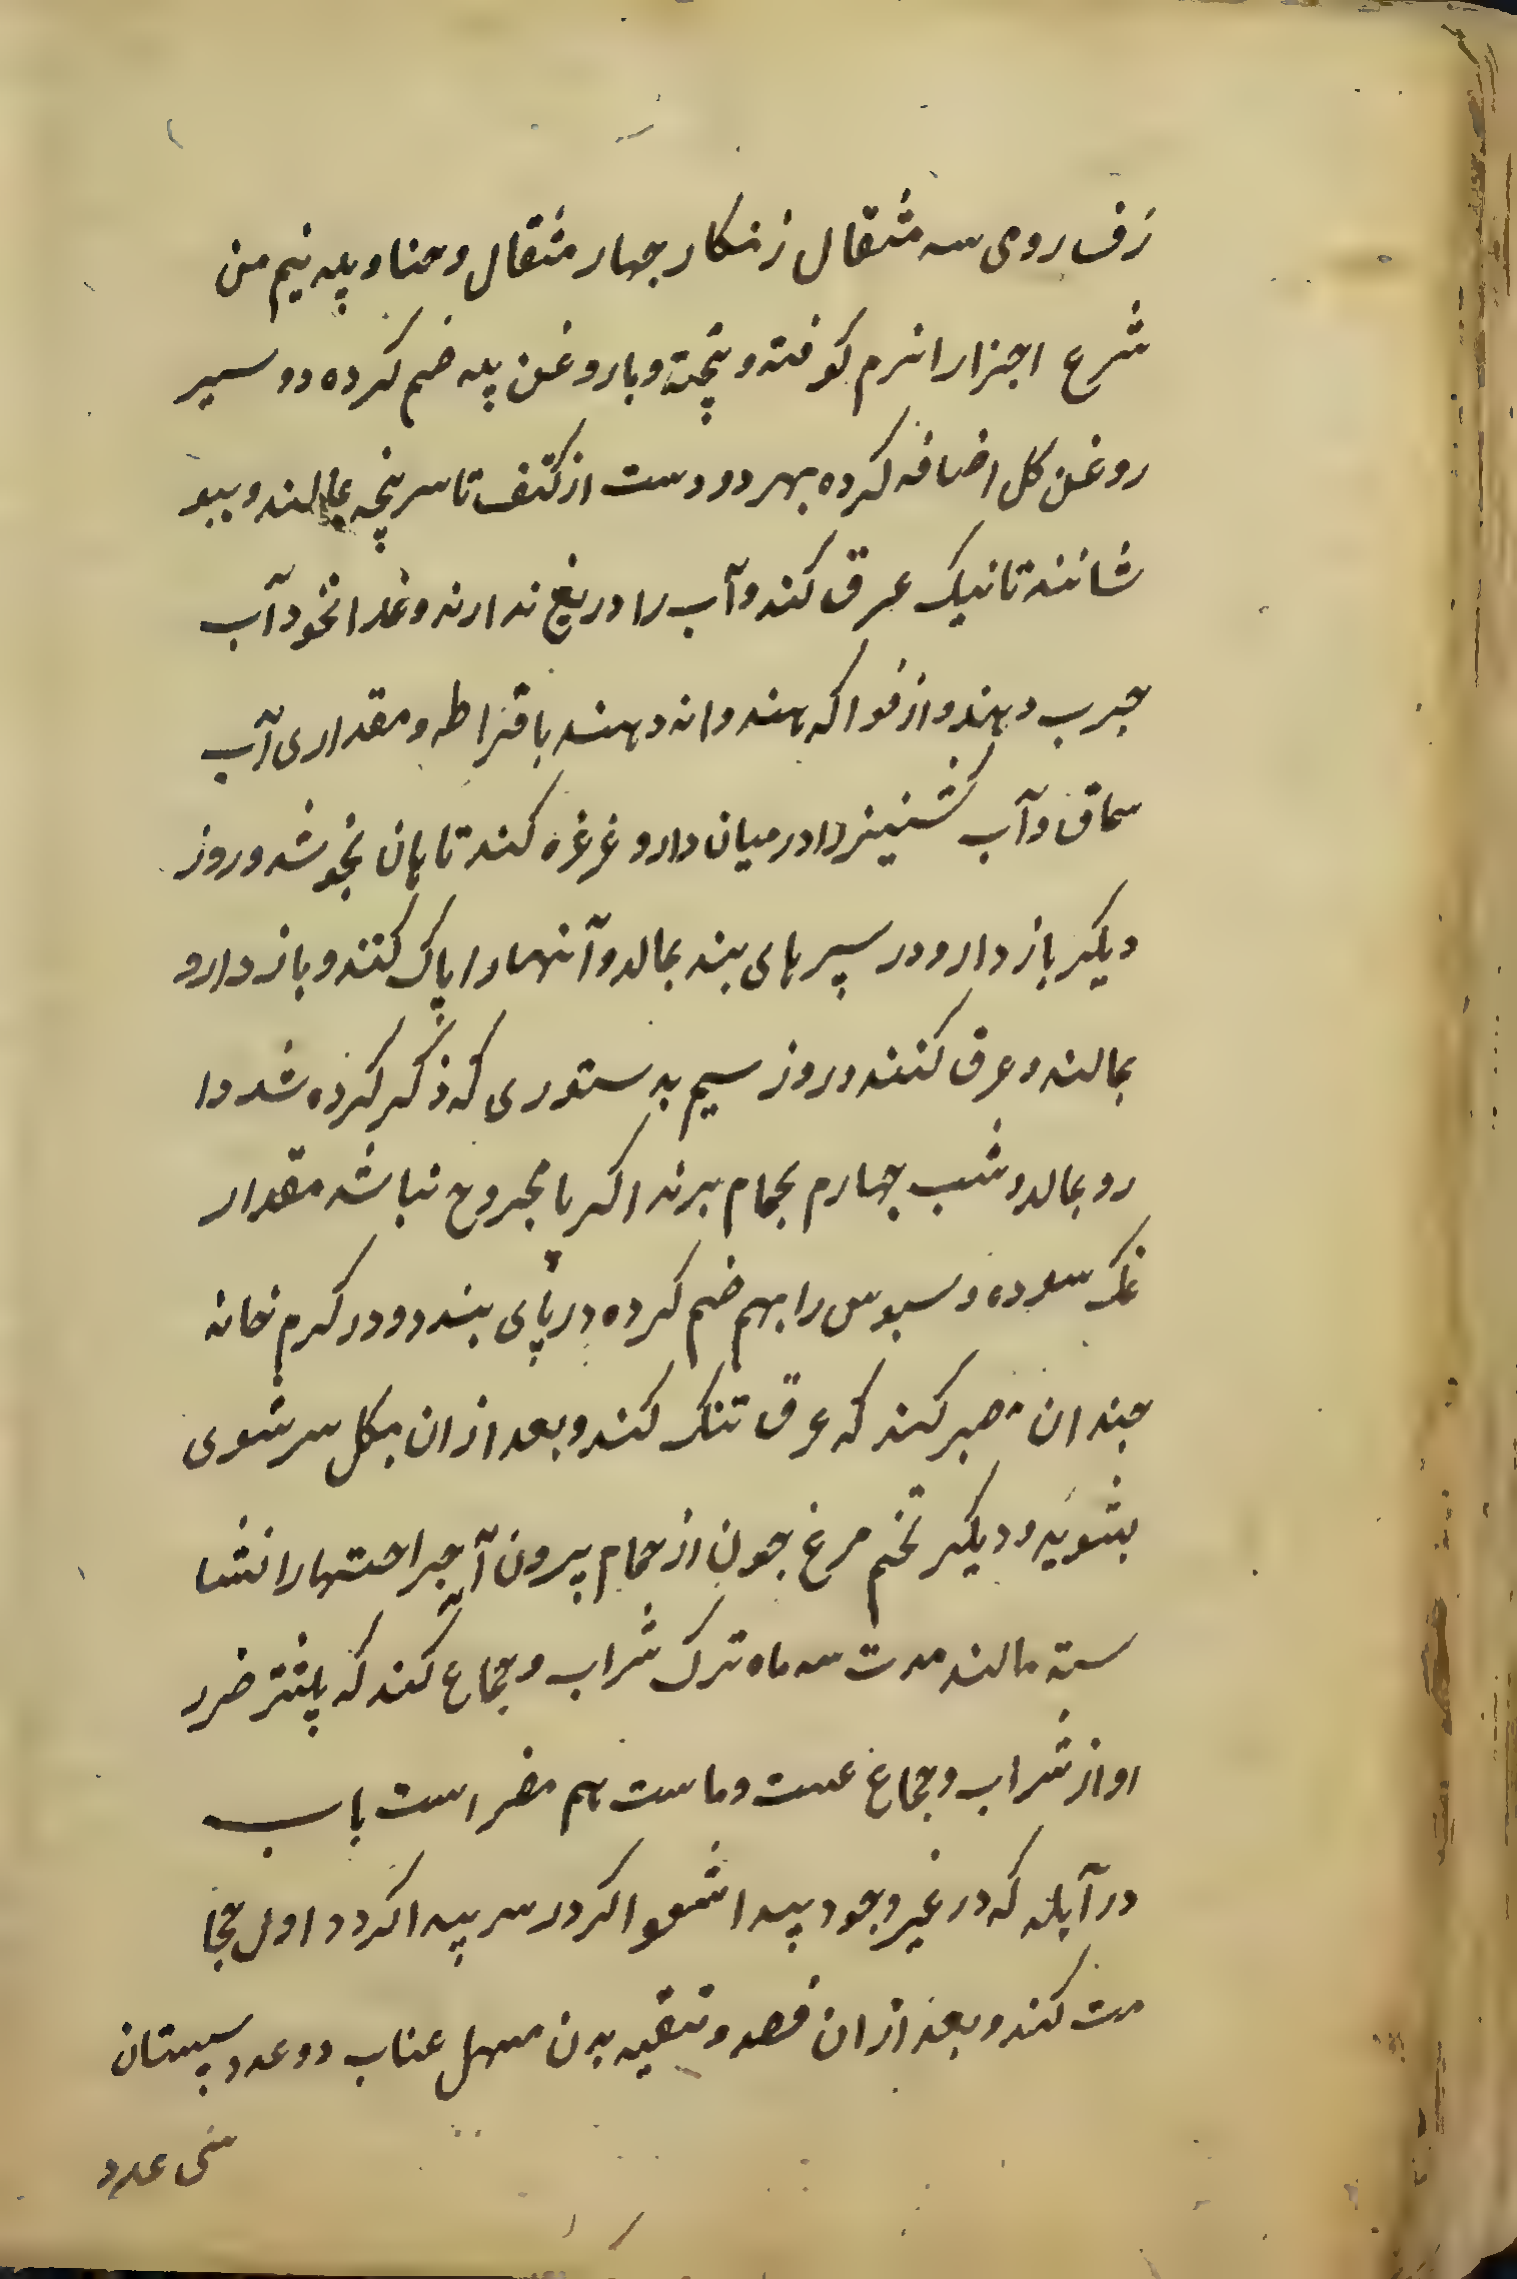 زف رومی سه مثقال زنکار جهار مثقال و حنا و پیه نیم من
شرع اجزا را نرم کوفته و پخته و با روغن پیه ضم کرده دو سیر
روغن کل اضافه کرده بهر دو دست از کتف تا سر پنجه بمالند و ببو
شانند تا نیک عرق کند و آب را دریغ ندارند و غدا نخود آب
جرب دهند و از فواکه هندوانه دهند با و مقداری آب
سماق و آب کشنیز را در میان دارو غرغره کند تا دهان نجوشد و روز
دیکر باز دارو در سپر های بند بمالد و آنها را پاک کنند و باز دارو
بمالند و عرق کنند و روز سیم بدستوری که ذکر کرده شد دا
رو بمالد و شب چهارم بحمام برند اکر پا مجروح نباشد مقدار
نمک سوده و سبوس را بهم ضم کرده در پای بندد و در کرم خانه
جندان صبر کند که عرق تنک کند و بعد از ان بکل سر شوی
بشوید و دیکر تخم مرغ جون از حمام بیرون آید جراحتها را نشا
سته مالند مدت سه ماه ترک شراب و جماع کند که بیشتر ضرر
او از شراب و جماع است و ماست هم مضر است باب
در آبله که در غیر وجود پیدا شود اکر در سر پیدا کردد اول حجا
مت کند و بعد از ان فصد و تنقیه بدن مسهل عناب دو عدد سپستان
سی عدد